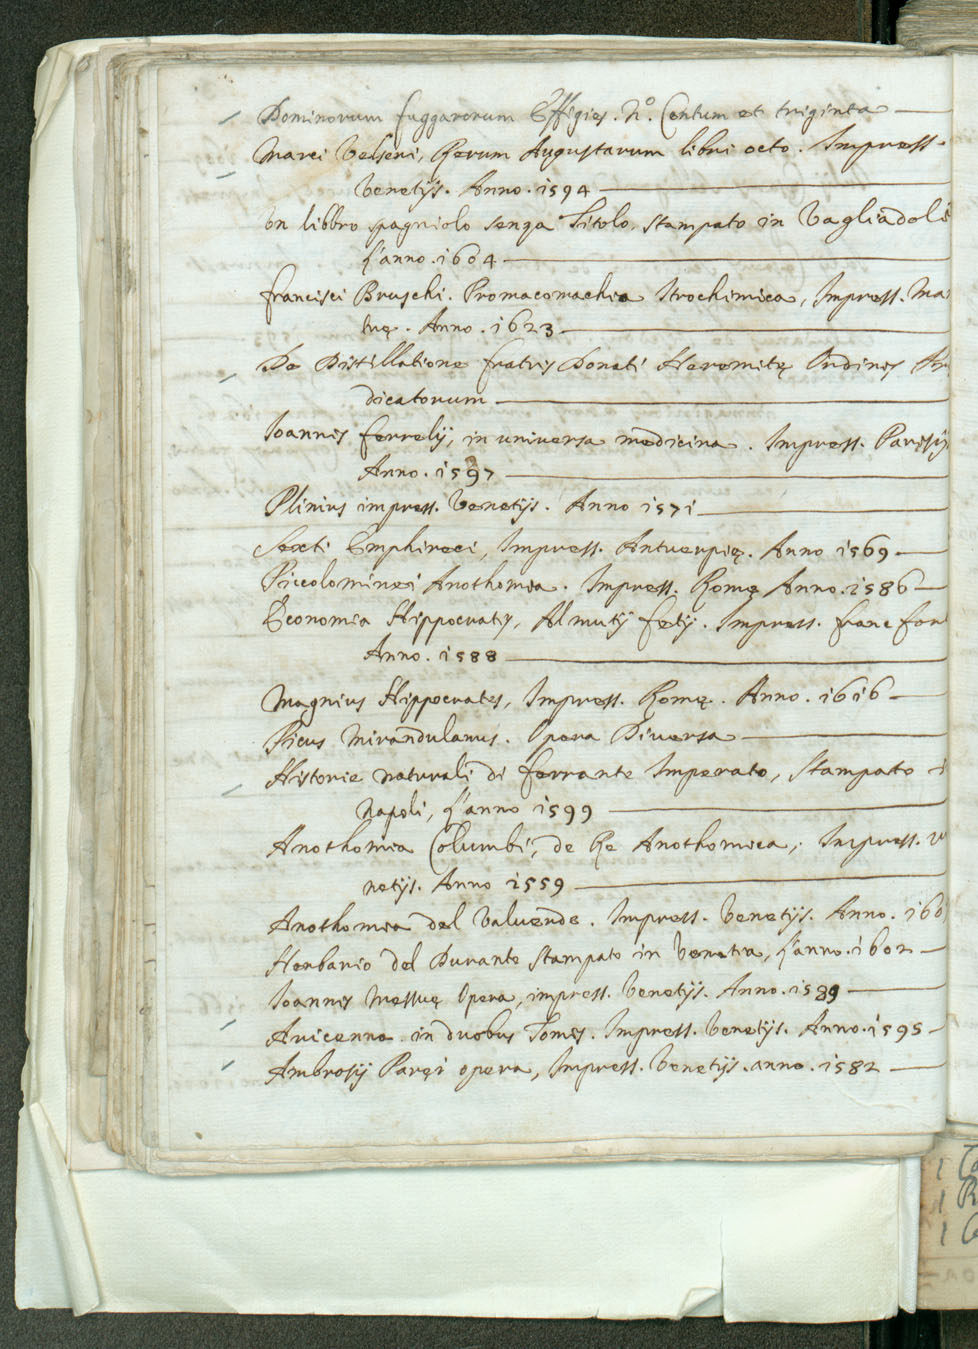 Dominorum fuggarorum Effigies. N.º Centum et triginta
Marci Velseri, Rerum Augustarum libri octo. Impress.
Venetijs. Anno. 1594
Un libbro spagniolo senza Titolo, stampato in Vagliadoli
L'anno. 1604
francisci Bruschi. Promacomachia Itrochimica, Impress. Ma
tuę. Anno. 1623
De Distillatione fratris Donati Heremitę Ordinis
dicatorum
Ioannis ferrelij, in universa medicina. Impress. Parisij
Anno. 1597
Plinius impress. Venetijs. Anno 1571
Sexti Emphireci, Impress. Antuerpię. Anno 1569
Piccolominei Anothomia. Impress. Romę Anno. 1586
Economia Hippocratis, Al mutij fetij. Impress. franc for
Anno. 1588
Magnius Hippocrates, Impress. Romę. Anno. 1616
Picus Mirandulanus. Opera Diversa
Historie naturali di ferrante Imperato, Stampato i
Napoli, L'anno 1599
Anothomia Columbi, de Re Anothomica, Impress. V
netijs. Anno 1559
Anothomia del Valuende. Impress. Venetijs. Anno. 160
Herbario del Durante Stampato in Venetia, L'anno. 1602
Ioannis Messuę Opera, impress. Venetijs. Anno. 1589
Avicenna in duobus Tomis. Impress. Venetijs. Anno. 1595
Ambrosij Paręi opera, Impress. Venetijs. anno. 1582